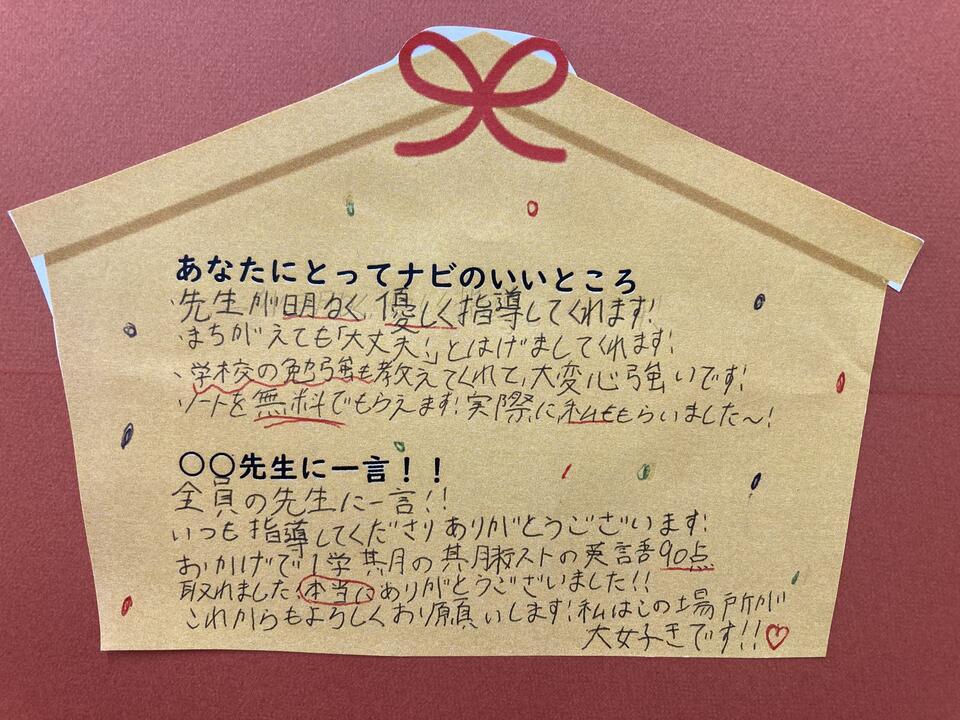 あなたにとってナビのいいところ
、先生が明るく、優しく指導してくれます!
、まちがえても「大丈夫!」とはげましてくれます!
、学校の勉強も教えてくれて、大変心強いです!
、ノートを無料でもらえます!実際に私ももらいました〜!
〇〇先生に一言!!
全員の先生に一言!!
いつも指導してくださりありがとうございます!
おかげで1学期の期末テストの英語90点
取れました!本当にありがとうございました!!
これからもよろしくお願いします!私はこの場所が
大好きです!!♡